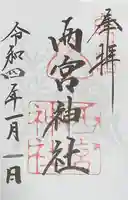 奉拝
雨宮神社
令和四年一月一日